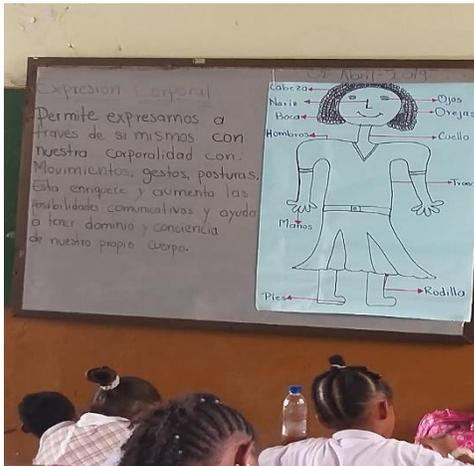 02 Abril-2019
Expresión Corporal
Permite expresarnos a
través de si mismos con
nuestra corporalidad con:
Movimientos, gestos, posturas.
Esta enriquece y aumenta las
posibilidades comunicativas y ayuda
a tener dominio y conciencia
de nuestro propio cuerpo.
Cabeza
Nariz
Boca
Hombros
Manos
Pies
Ojos
Orejas
Cuello
Tronc
Rodilla